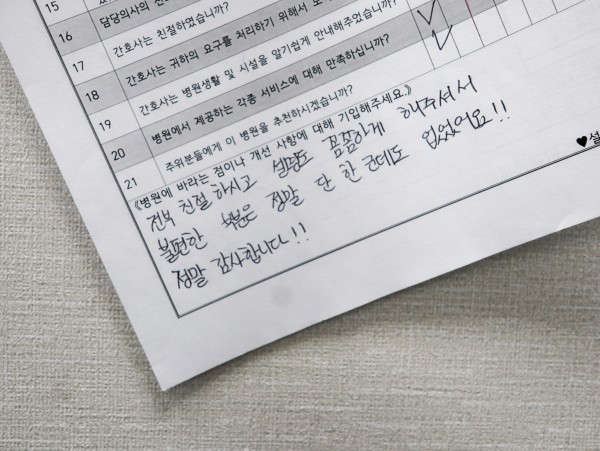 15
16 담당의사의 진
17 간호사는 친절하였습니까?
18 간호사는 귀하의 요구를 처리하기 위해서 노
19 간호사는 병원생활 및 시설을 알기쉽게 안내해주었습니까?
20 병원에서 제공하는 각종 서비스에 대해 만족하십니까?
21 주위분들에게 이 병원을 추천하시겠습니까?
《병원에 바라는 점이나 개선 사항에 대해 기입해주세요.》
전복 친절하시고 설명도 꼼꼼하게 해주셔서
불편한 부분은 정말 단 한 군데도 없었어요!!
정말 감사합니다!!
♥설